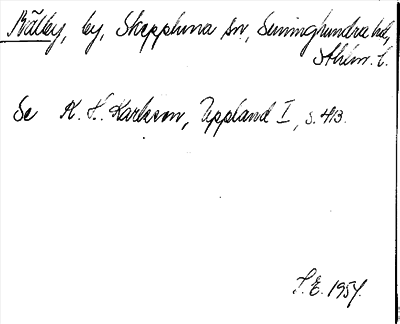 Bålby, by, Skepptuna sn, Seminghundra hd,
Sthlm. l.
Se K. H. Karlsson, Uppland I, s. 413.
S.E. 1954.